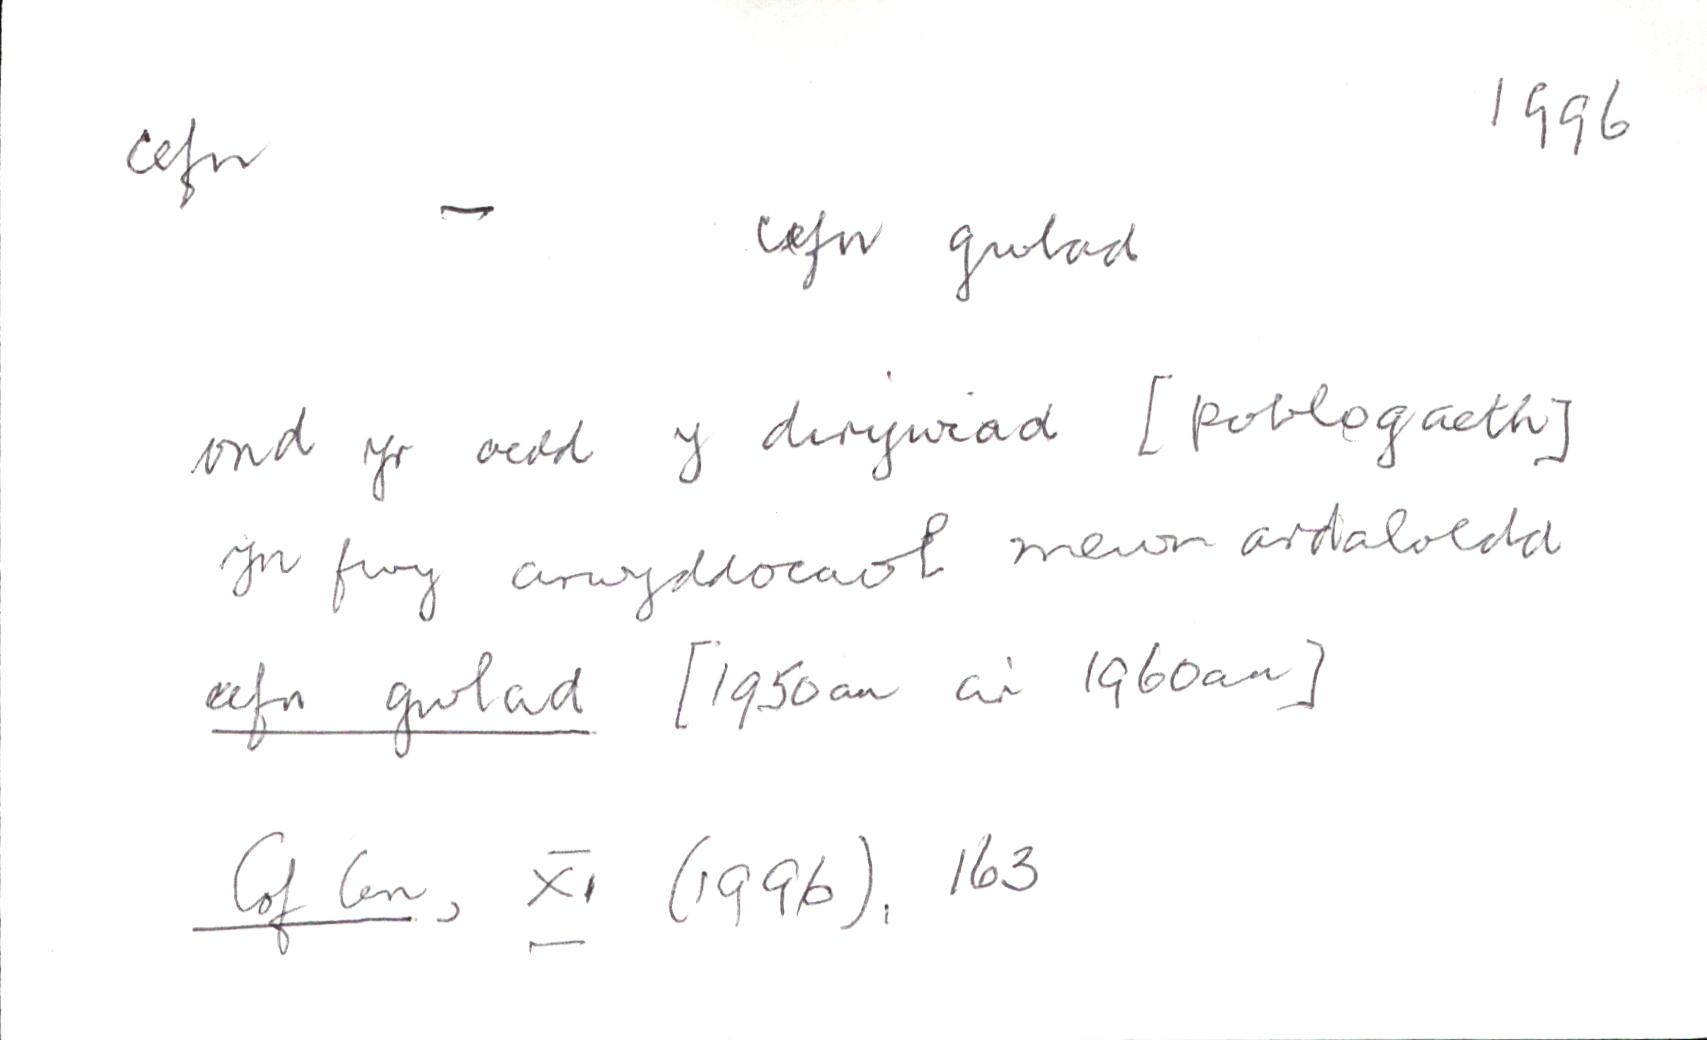 1996
cefn
– cefn gwlad
ond yr oedd y dirywiad [poblogaeth]
yn fwy arwyddocaol mewn ardaloedd
cefn gwlad [1950au a'i 1960au]
Cof Cen, XI (1996), 163